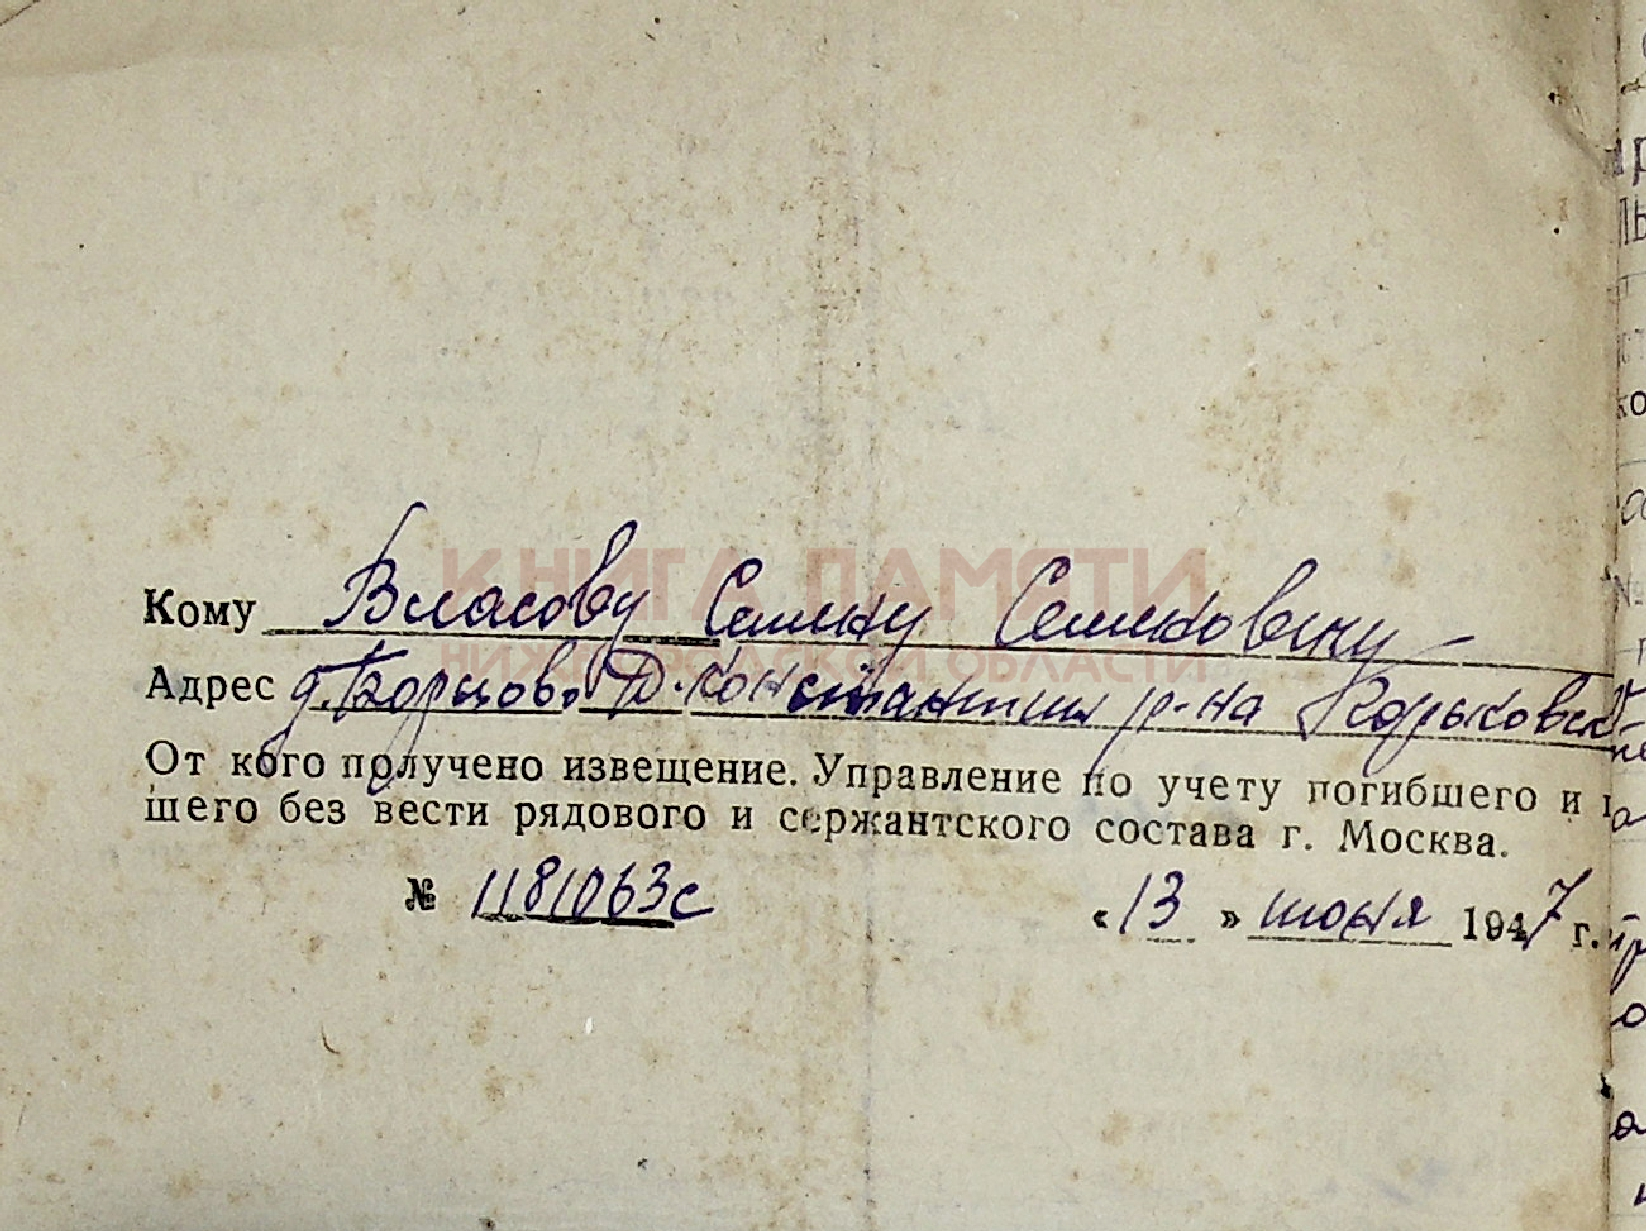 КНИГА ПАМЯТИ
НИЖЕГОРОДСКОЙ ОБЛАСТИ
Кому Власову Семену Семеновичу
Адрес д. Борцово Д-Константин р-на Горьковск
От кого получено извещение. Управление по учету погибшего и
шего без вести рядового и сержантского состава г. Москва.
№ 1181063с «13» июня 1947 г.